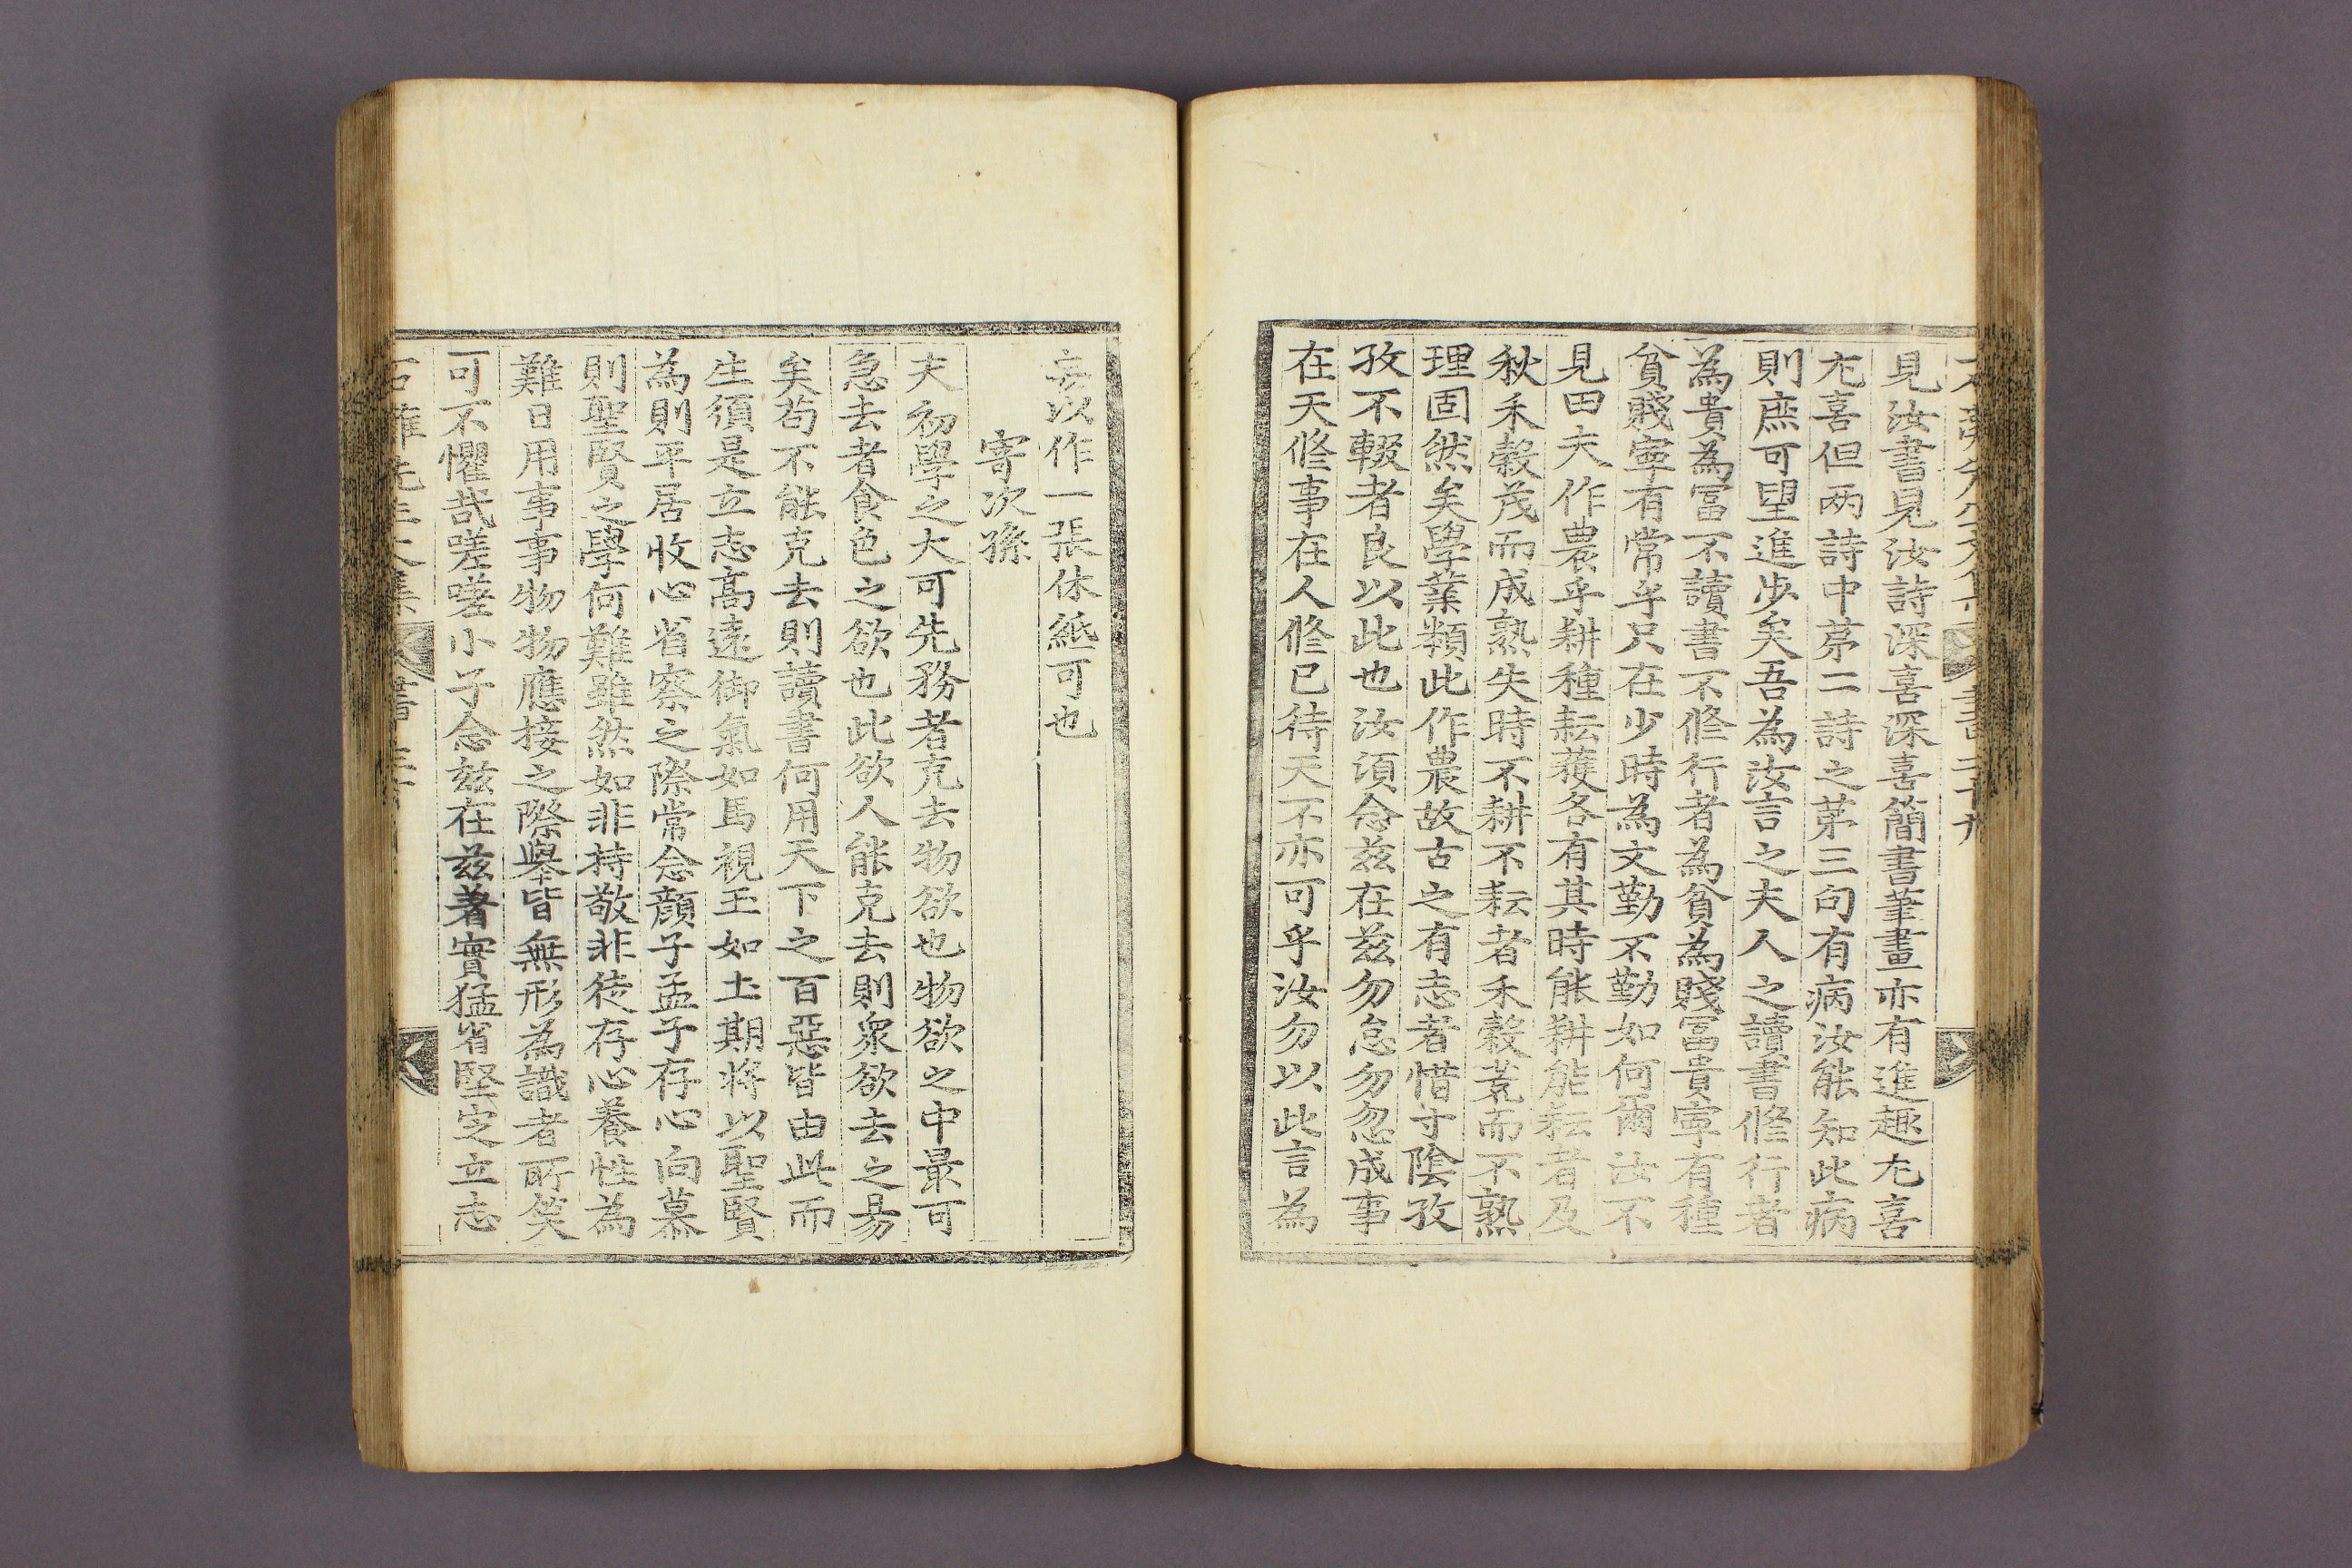 見汝書見汝詩深喜深喜簡書筆畫亦有進趣尤喜
尤喜但两詩中苐二詩之苐三句有病汝能知此病
則庶可望進步矣吾為汝言之夫人之讀書修行者
為貴為冨不讀書不修行者為貧為賤冨貴寧有種
貧賤寧有常乎只在少時為文勤不勤如何爾汝不
見田夫作農乎耕種耘穫各有其時能耕能耘者及
秋禾穀茂而成熟失時不耕不耘者禾穀荒而不熟
理固然矣學業類此作農故古之有志者惜寸陰孜
孜不輟者良以此也汝須念兹在兹勿怠勿忽成事
在天修事在人修已待天不亦可乎汝勿以此言為
妄以作一張休紙可也
寄次孫
夫初學之大可先務者克去物欲也物欲之中最可
急去者食色之欲也此欲人能克去則衆欲去之易
矣苟不能克去則讀書何用天下之百惡皆由此而
生須是立志高遠御氣如馬視玉如土期將以聖賢
為則平居收心省察之際常念顔子孟子存心向慕
則聖賢之學何難雖然如非持敬非徒存心養性為
難日用事事物物應接之際舉皆無形為識者所笑
可不懼哉嗟嗟小子念兹在兹著實猛省堅定立志